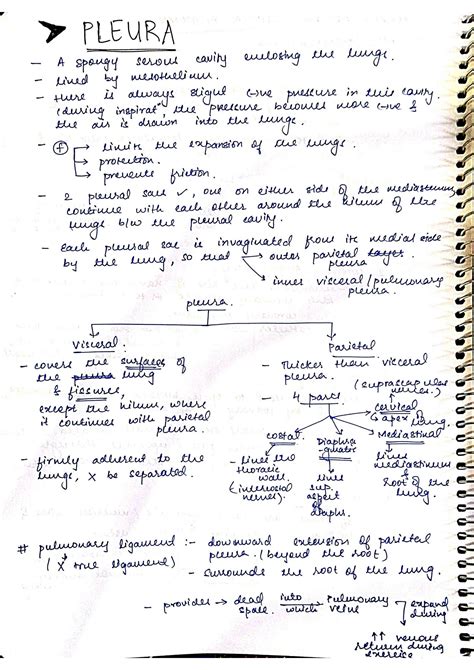 ➤ PLEURA
- A spongy serous cavity enclosing the lungs.
- lined by mesothelium.
- there is always slight (-)ve pressure in this cavity.
(during inspiratn, the pressure becomes more (-)ve &
the air is drawn into the lungs.
- (f) → limits the expansion of the lungs.
→ protection.
→ prevents friction.
- 2 pleural sacs ✓, one on either side of the mediastinum
continue with each other around the hilum of the
lungs b/w the pleural cavity.
- Each pleural sac is invaginated from its medial side
by the lung, so that → outer parietal layer
pleura
→ inner visceral/pulmonary
pleura.
pleura.
visceral:
- covers the surfaces of
the pleura lung
& fissures,
except the hilum, where
it continues with parietal
pleura.
- firmly adherent to the
lungs, X be separated.
parietal
- Thicker than visceral
pleura.
- 4 parts
(suprascapular
nerves)
cervical
↳ apex of lung.
Mediastinal
↳ lines
mediastinum
& root of the
lung.
costal.
- lines the
thoracic
wall.
(intercostal
nerves).
Diaphra
-gmatic
lines
sup.
aspect
of
diaphr.
# pulmonary ligament :- downward extension of parietal
(X true ligament) pleura. (beyond the root)
- surrounds the root of the lung.
- provides → dead space. into which → pulmonary veins → expand
during
↑↑ venous
return during
exercise